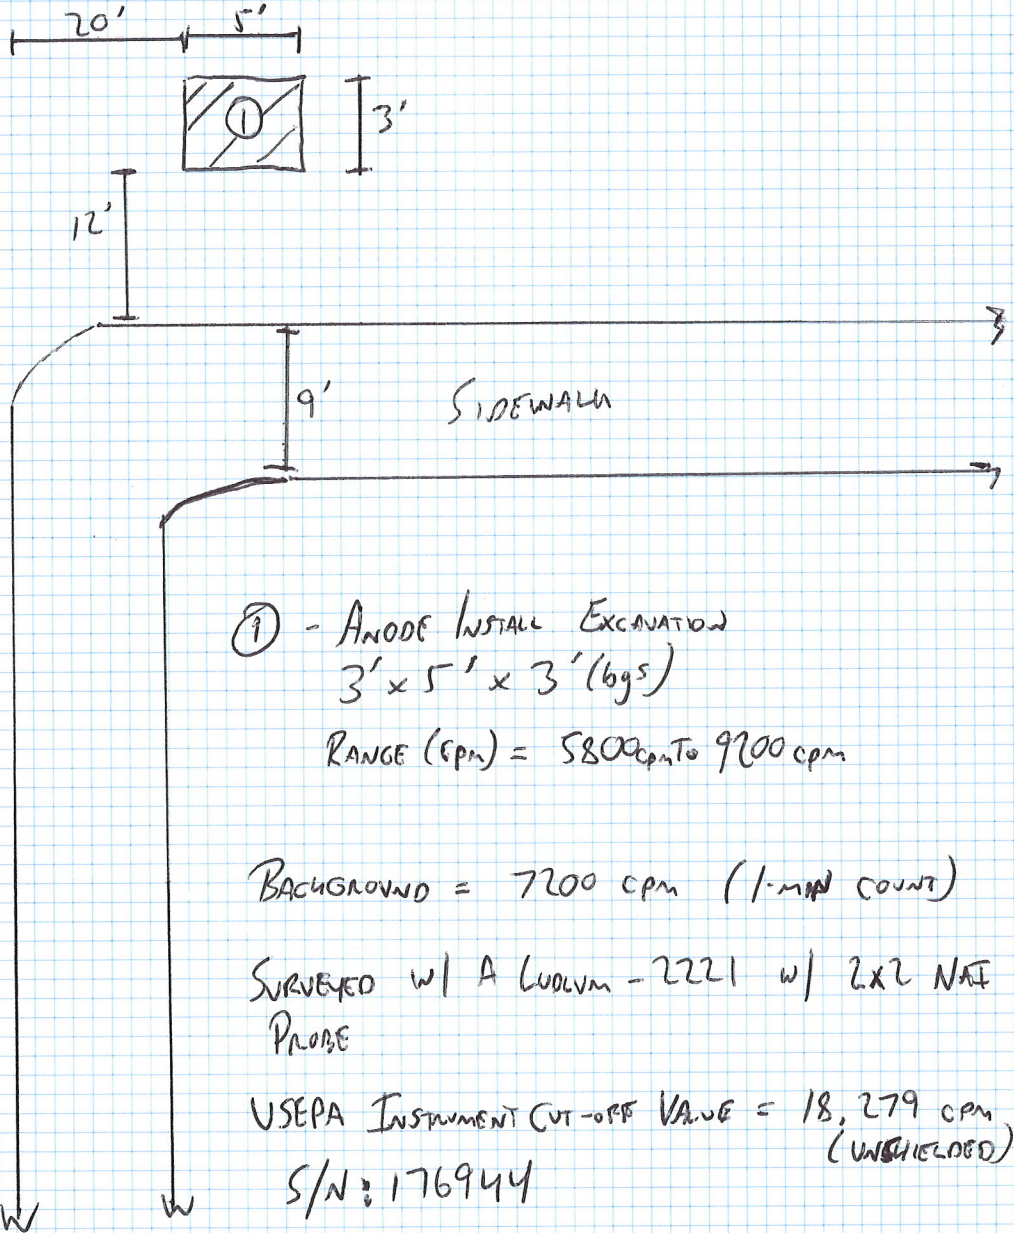 20' 5'
① 3'
12'
9' SIDEWALK
① - ANODE INSTALL EXCAVATION
3' x 5' x 3' (bgs)
RANGE (cpm) = 5800cpm To 9200 cpm
BACKGROUND = 7200 cpm (1-MIN COUNT)
SURVEYED w/ A LUDLUM-2221 w/ 2x2 NAI
PROBE
USEPA INSTRUMENT CUT-OFF VALUE = 18,279 cpm
(UNSHIELDED)
S/N: 176944